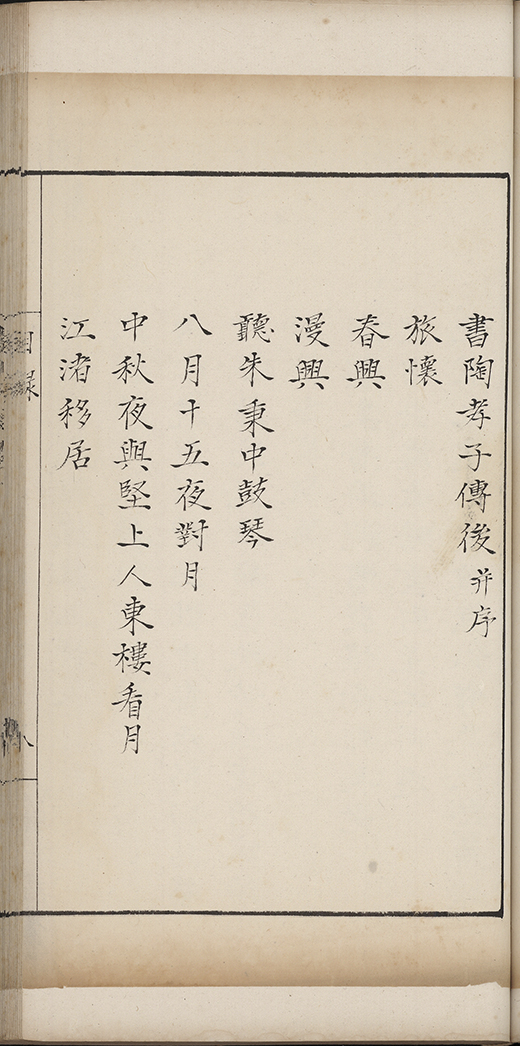 書陶孝子傳後 并序
旅懷
春興
漫興
聽朱秉中鼓琴
八月十五夜對月
中秋夜與堅上人東樓看月
江渚移居
目錄
八